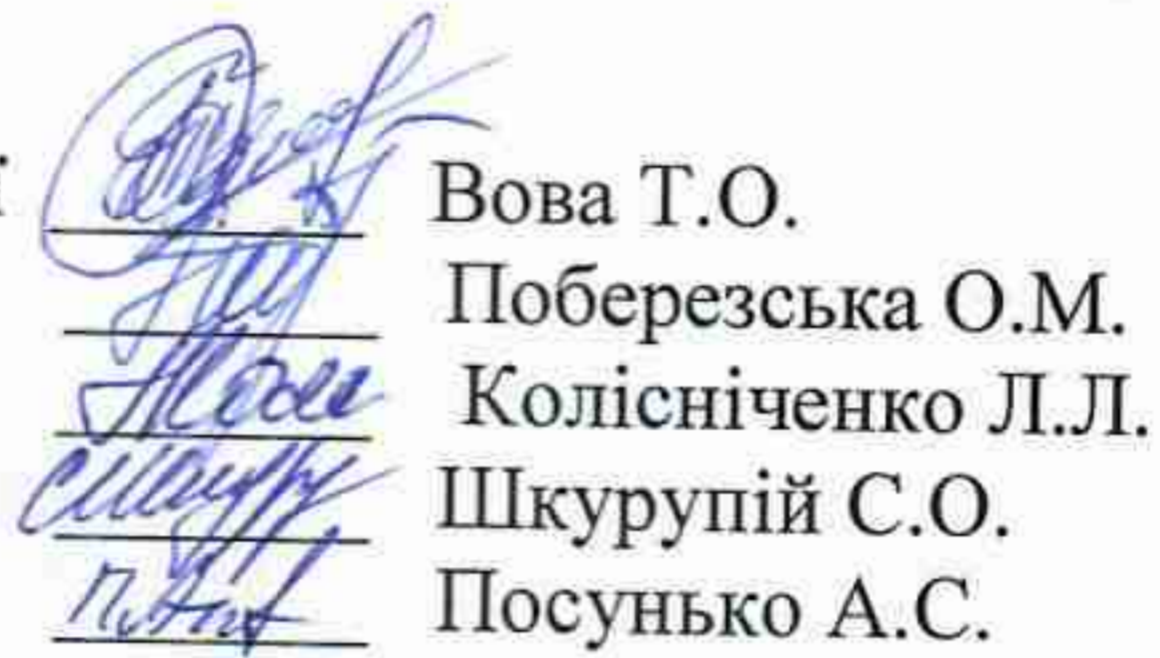 Вова Т.О.
Поберезська О.М.
Колісніченко Л.Л.
Шкурупій С.О.
Посунько А.С.